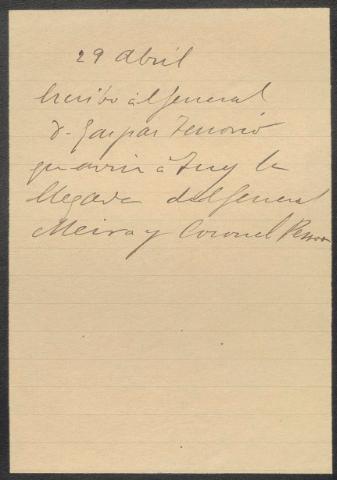 29 abril
Escribo al General
D. Gaspar Tenorio
que avise á Tuy la
llegada del General
Meira y Coronel